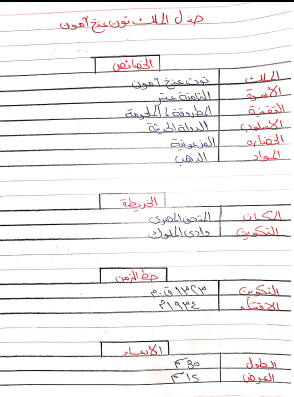 صندل الملك توت عنخ آمون
الخصائص
الملك توت عنخ آمون
الأسرة الثامنة عشر
التقنية الطروقة / الملحومة
الأسلوب الدولة الحديثة
الحضاره الفرعونية
المواد الذهب
الخريطة
المكان المتحف المصرى
التكوين وادى الملوك
خط الزمن
التكوين ١٣٢٣ ق.م
الاقتناء ١٩٣٤م
الأبعاد
الطول ٣٥ سم
العرض ١٥ سم